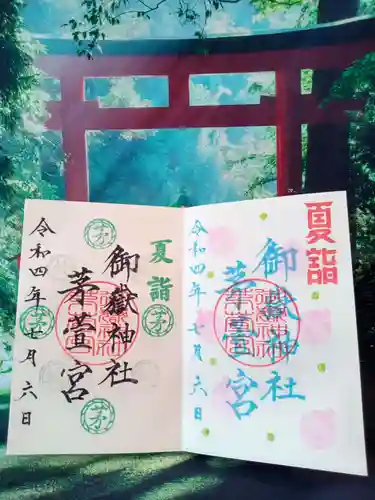 夏詣
御嶽神社
茅萱宮
令和四年七月六日
茅
茅
茅
夏詣
御嶽神社
茅萱宮
令和四年七月六日